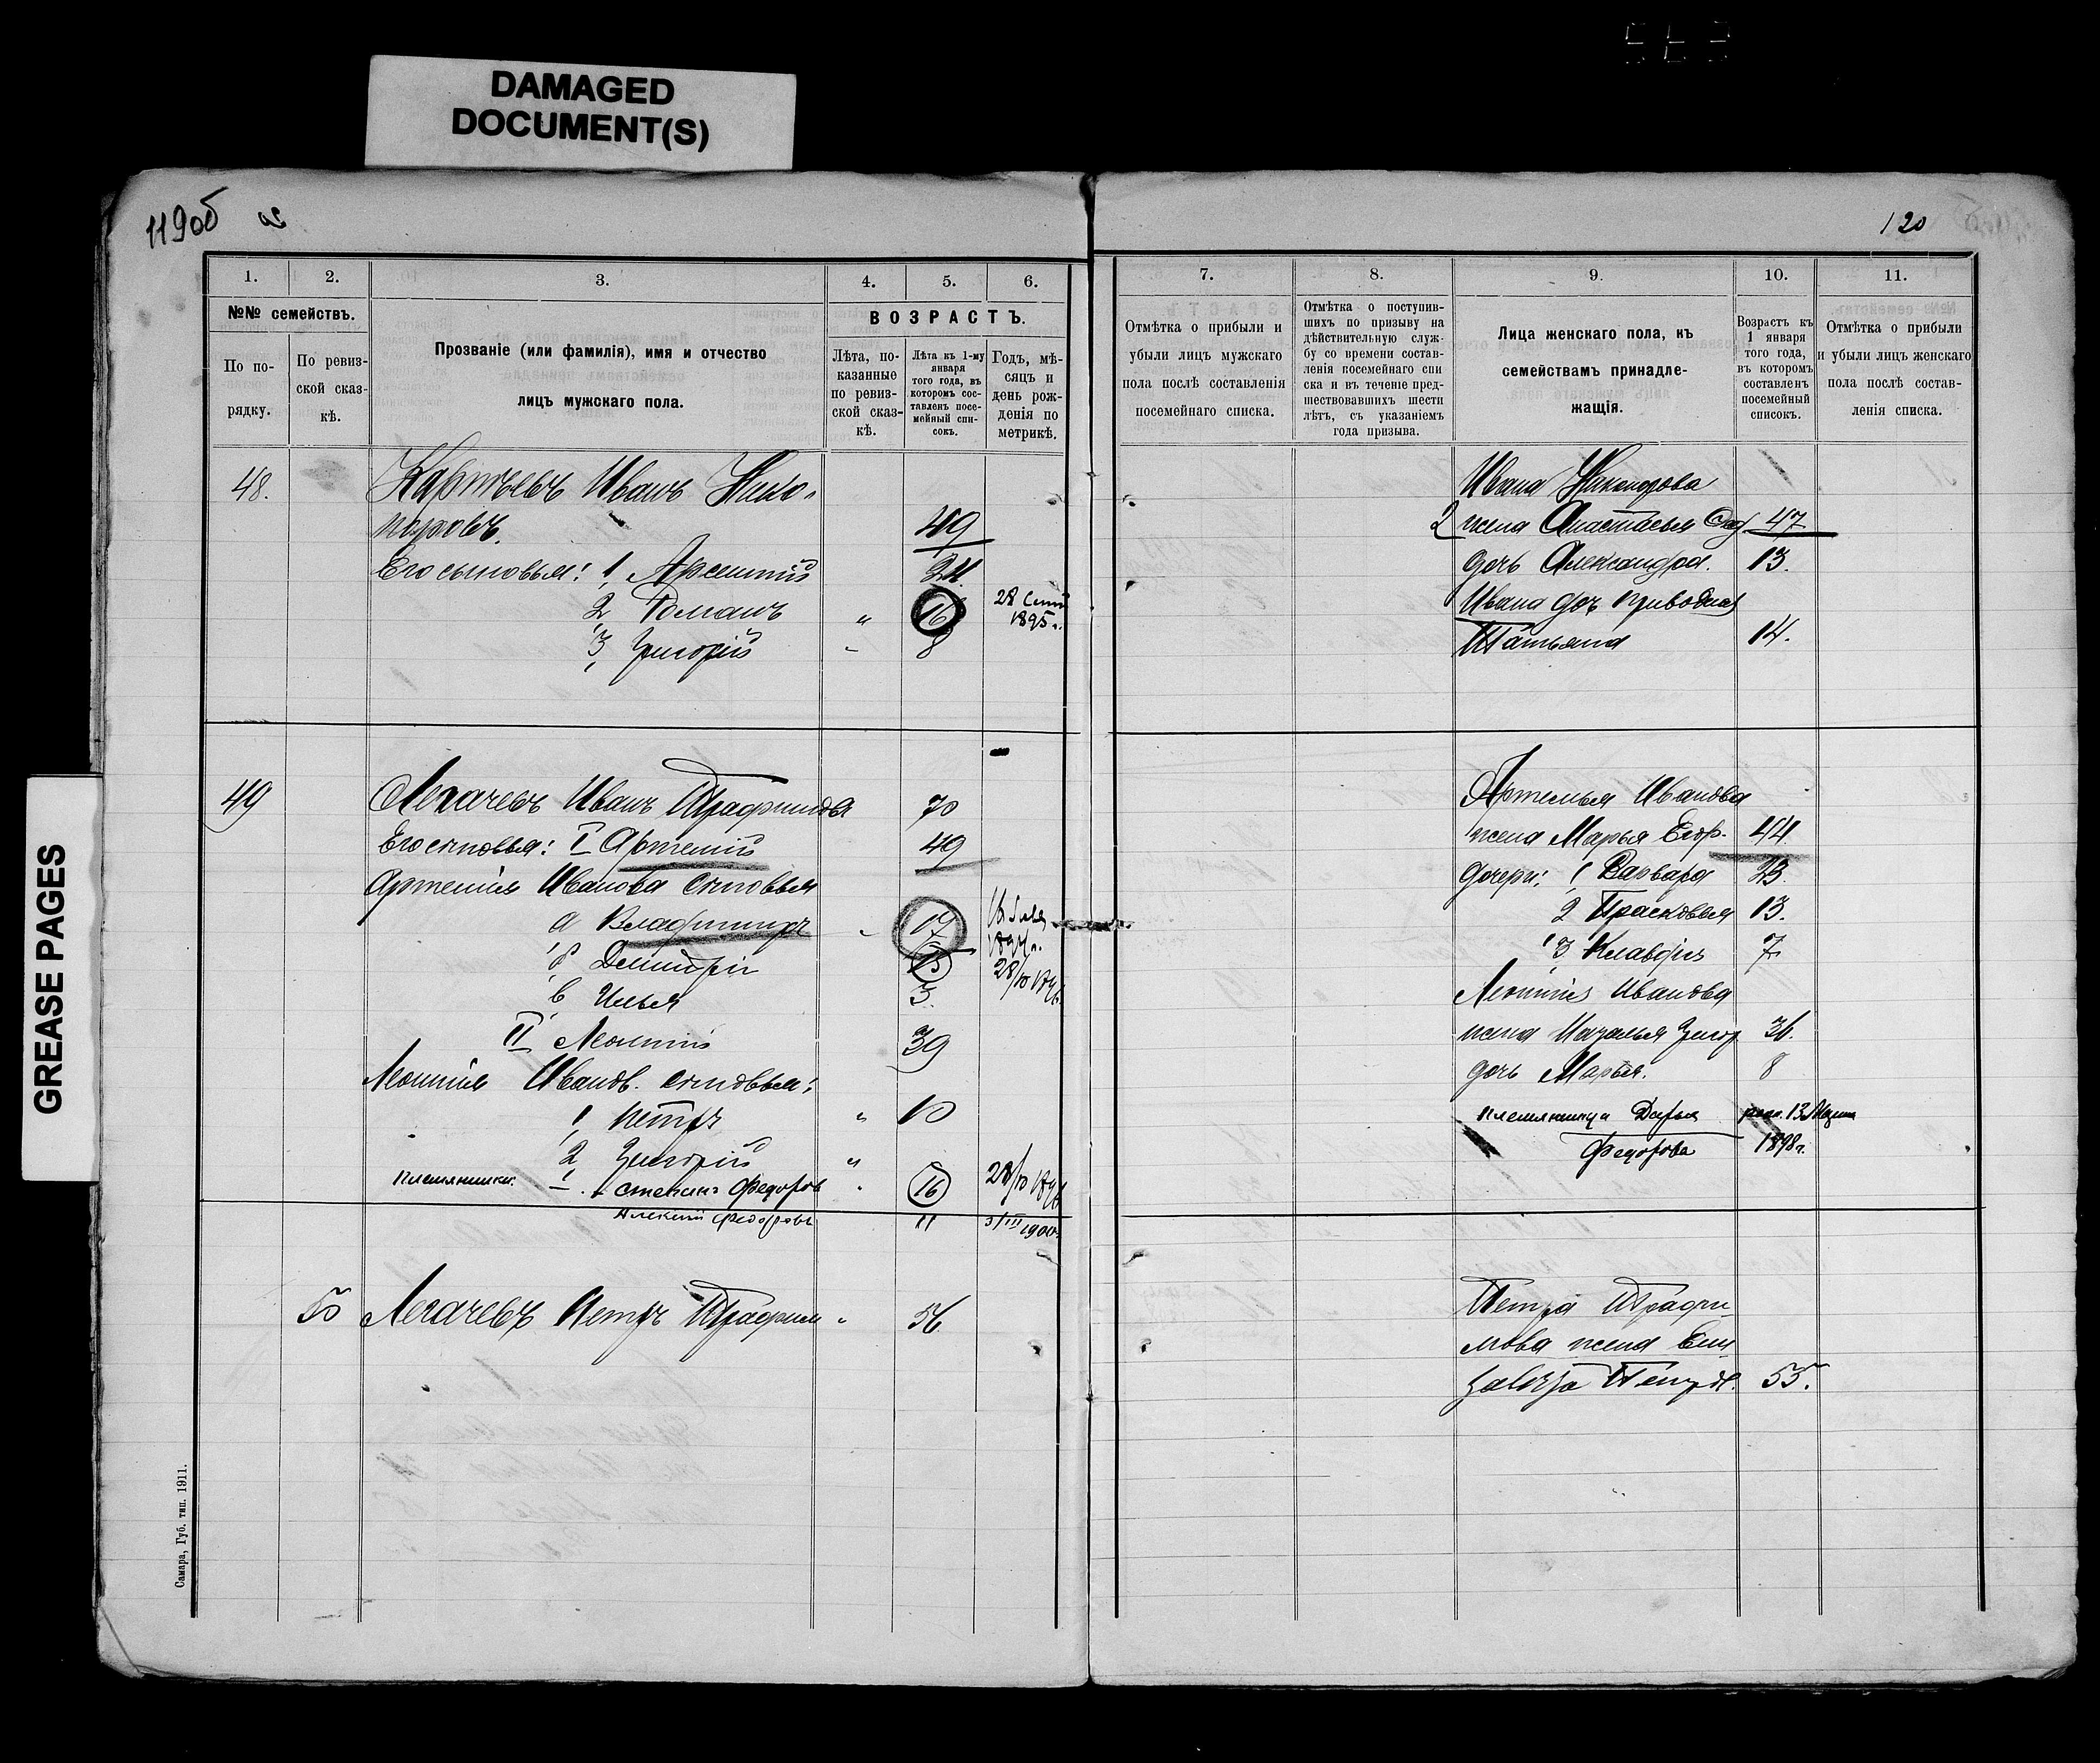 DAMAGED
DOCUMENT(S)
GREASE PAGES
119об
120
1.
2.
3.
4.
5.
6.
№№ семействъ.
ВОЗРАСТЪ.
По по-
рядку.
По ревиз-
ской сказ-
кѣ.
Прозваніе (или фамилія), имя и отчество
лицъ мужскаго пола.
Лѣта, по-
казанные
по ревиз-
ской сказ-
кѣ.
Лѣта къ 1-му
января
того года, въ
которомъ сос-
тавленъ посе-
мейный спи-
сокъ.
Годъ, мѣ-
сяцъ и
день рож-
денія по
метрикѣ.
48.
Иванъ Ника-
норовъ.
49
Его сыновья: 1, Арсентій
24
2, Романъ
„
16
28 Сент
1895 г.
3, Григорій
„
8
49
Легачевъ Иванъ Трафимовъ
70
Его сыновья: I Артемій
49
Артемія Иванова сыновья
а Владимиръ
„
17
1894 г.
б Дмитрій
15
28/10 1896
в Илья
3.
II Леонтій
39
Леонтія Иванов. сыновья:
1, Петръ
„
10
2, Григорій
„
племянники. 1. Степанъ Федоров
„
16
28/10 1896
Алексѣй Федоровъ
11
3/III 1900
50
Легачевъ Петръ Трафим
„
56.
Самара, Губ. тип. 1911.
7.
8.
9.
10.
11.
Отмѣтка о прибыли и
убыли лицъ мужскаго
пола послѣ составленія
посемейнаго списка.
Отмѣтка о поступив-
шихъ по призыву на
дѣйствительную служ-
бу со времени состав-
ленія посемейнаго спи
ска и въ теченіе пред-
шествовавшихъ шести
лѣтъ, съ указаніемъ
года призыва.
Лица женскаго пола, къ
семействамъ принадле-
жащія.
Возрастъ къ
1 января
того года,
въ которомъ
составленъ
посемейный
списокъ.
Отмѣтка о прибыли
и убыли лицъ женскаго
пола послѣ состав-
ленія списка.
Ивана Никанорова
2 жена Анастасья
47
дочь Александра.
13.
Ивана доч приводная
Татьяна
14.
Артемья Иванова
жена Марья Егор.
44
дочери: 1 Варвара
23.
2 Прасковья
13.
3 Клавдія
7
Леонтія Иванова
жена Наталья Григор
36.
дочь Марья.
8
племянница Дарья
род. 13 Марта
Федорова
1898 г.
Петра Трафи-
мова жена Ели
завета Петров.
55.